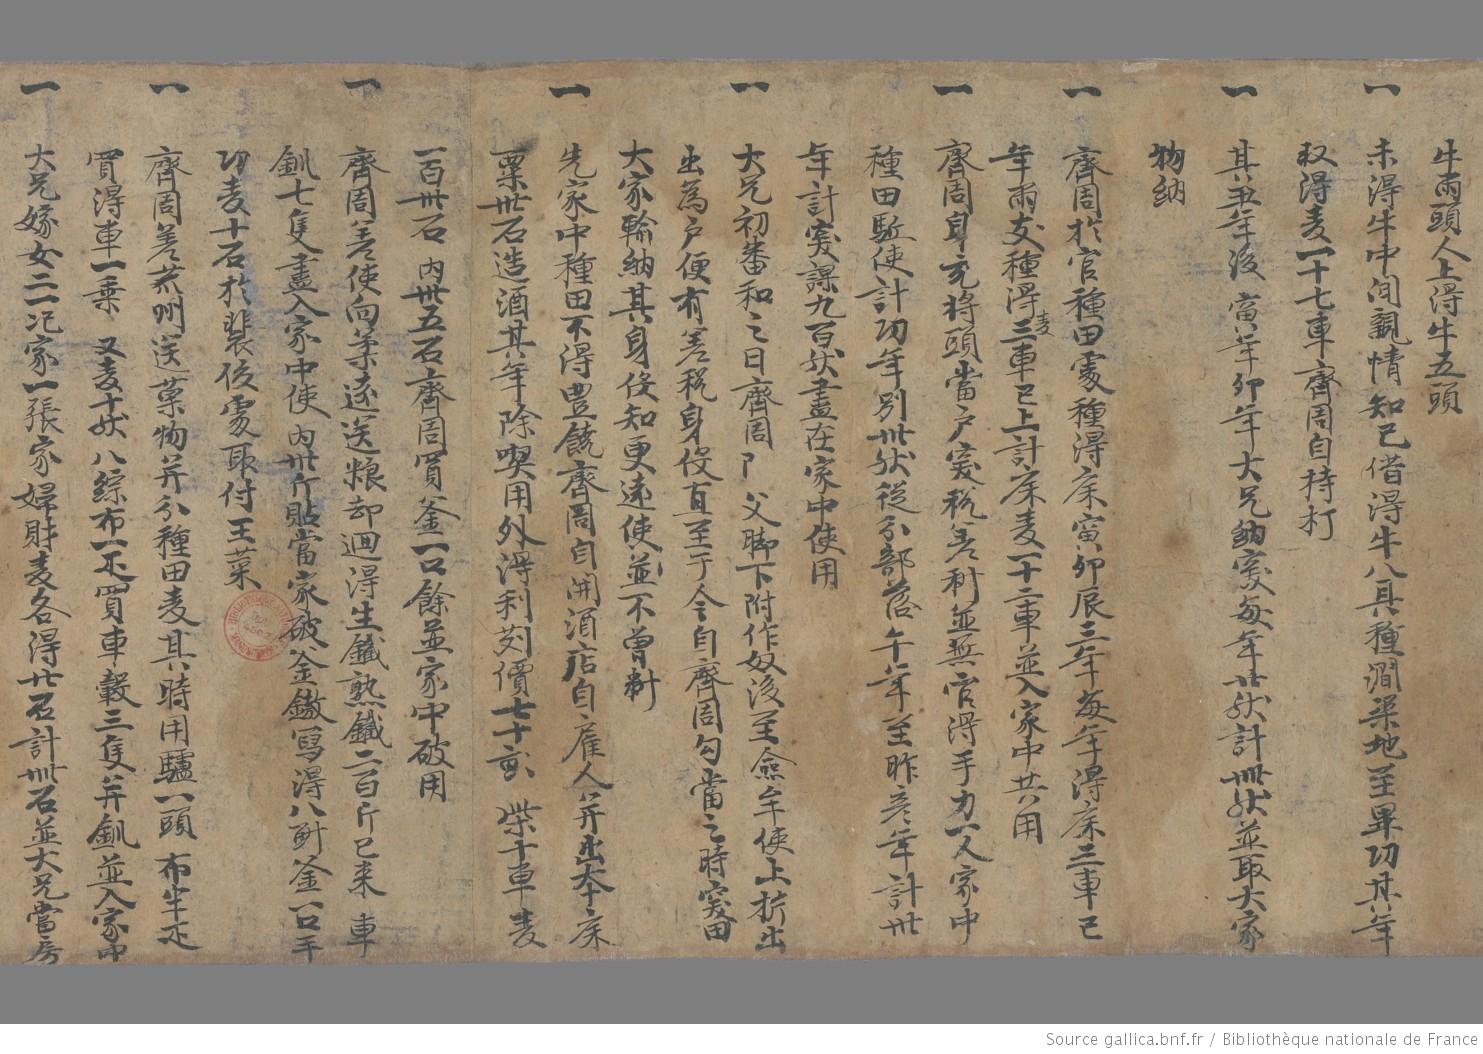 牛兩頭人上得牛五頭
一 未得牛中間親情知己借得牛八具種澗渠地至畢功其年
收得麦一十七車齊周自持打
一 其丑年後寅年卯年大兄納突每年廿馱計卌馱並取大家
物納
一 齊周於官種田處種得床寅卯辰三年每年得床三車已
年兩支種得麦三車已上計床麦一十二車並入家中共用
一 齊周身充將頭當戶突稅差科並無官得手力一人家中
種田駈使計功年別卅馱從分部落午年至昨亥年計卅
年計突課九百馱盡在家中使用
一 大兄初番和之日齊周阝父脚下附作奴後至僉牟使上析出
出為戶便有差稅身役直至于今自齊周勾當之時突田
大家輸納其身役知更遠使並不曾料
一 先家中種田不得豊饒齊周自開酒店自雇人并出本床
粟卅石造酒其年除喫用外得利刈價七十畝 柴十車麦
一百卅石 內卅五石齊周買釜一口餘並家中破用
一 齊周差使向柔遠送粮却迴得生鐵熟鐵二百斤已来車
釧七隻盡入家中使內卅斤貼當家破釜鏊寫得八斗釜一口手
功麦十石於裴俊處取付王菜
一 齊周差瓜州送菓物并分種田麦其時用驢一頭布半疋
買得車一乗 又麦十馱八綜布一疋買車轂三隻并釧並入家中
一 大兄嫁女二一氾家一張家婦財麦各得廿石計卌石並大兄當房
Source gallica.bnf.fr / Bibliothèque nationale de France